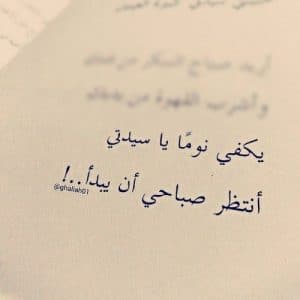 أريد صباح السكر من فمك
وأشرب القهوة من يديك
يكفي نومًا يا سيدتي
أنتظر صباحي أن يبدأ..!
@ghaliah01